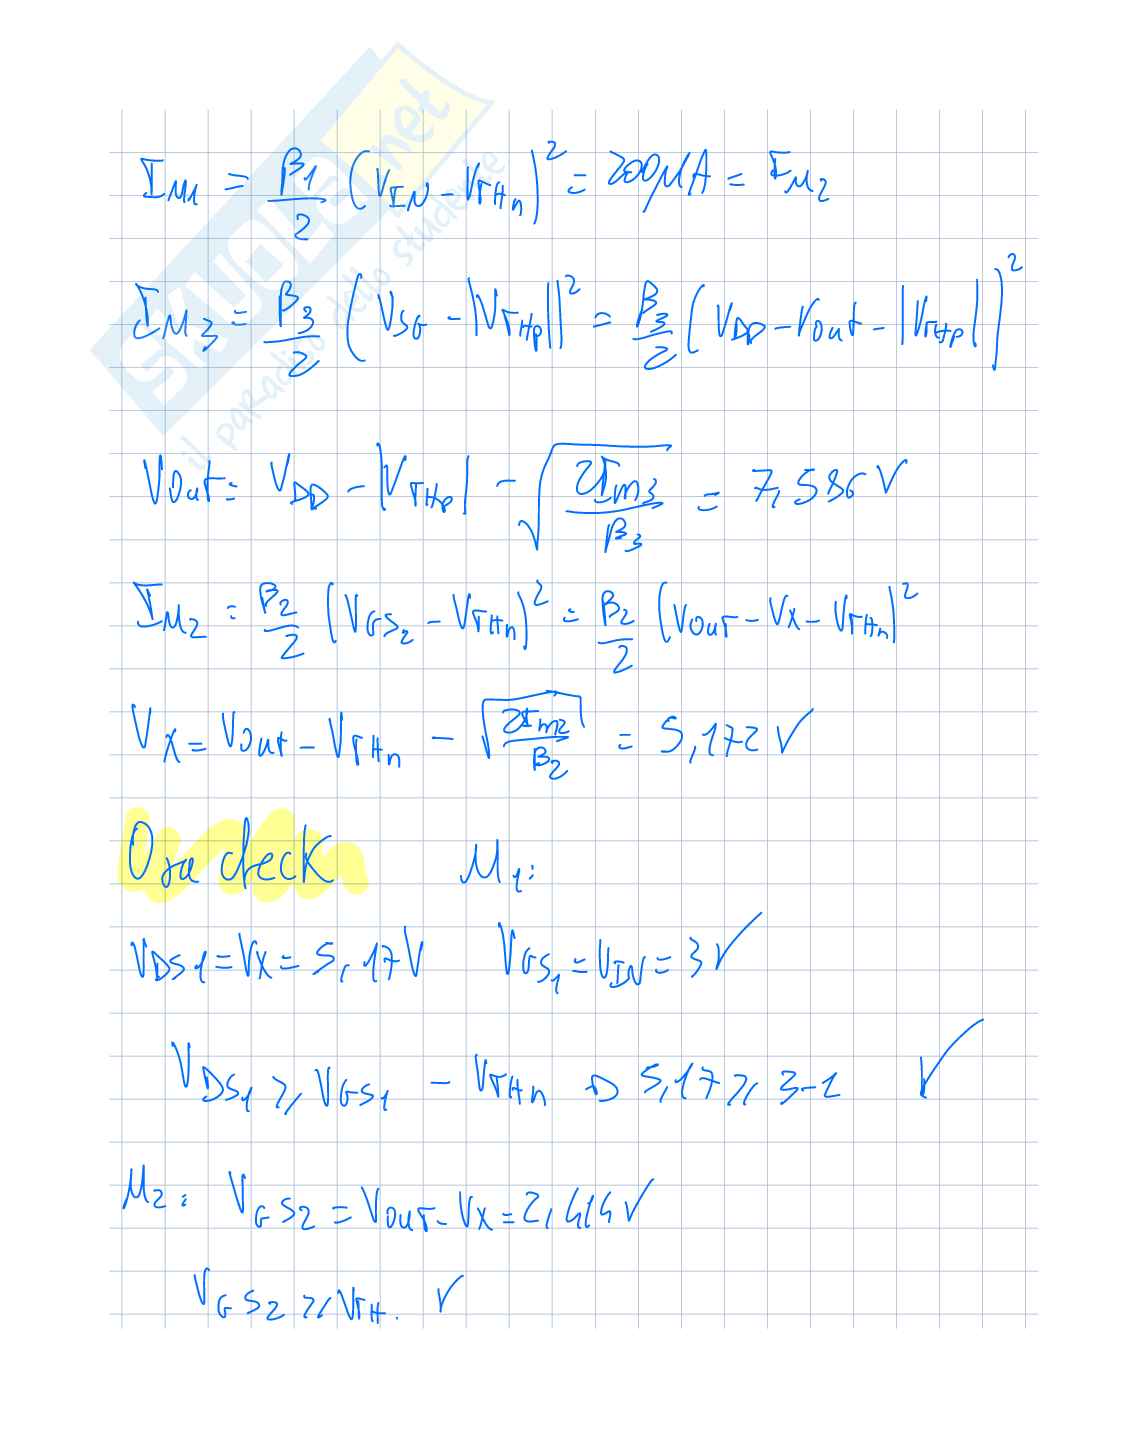 SKUOLA.net
il paradiso dello studente
I_M1 = β1/2 (V_IN - V_THn)^2 = 200μA = I_M2
I_M3 = β3/2 (V_SG - |V_THp|)^2 = β3/2 (V_DD - Vout - |V_THp|)^2
Vout = V_DD - |V_THp| - √(2I_m3/β3) = 7,586 V
I_M2 = β2/2 (V_GS2 - V_THn)^2 = β2/2 (V_OUT - V_X - V_THn)^2
V_X = Vout - V_THn - √(2I_m2/β2) = 5,172 V
Ora check M1:
V_DS1 = V_X = 5,17 V V_GS1 = V_IN = 3 V
V_DS1 ≥ V_GS1 - V_THn ⊳ 5,17 ≥ 3-1 ✓
M2: V_GS2 = V_OUT - V_X = 2,414 V
V_GS2 ≥ V_TH. ✓